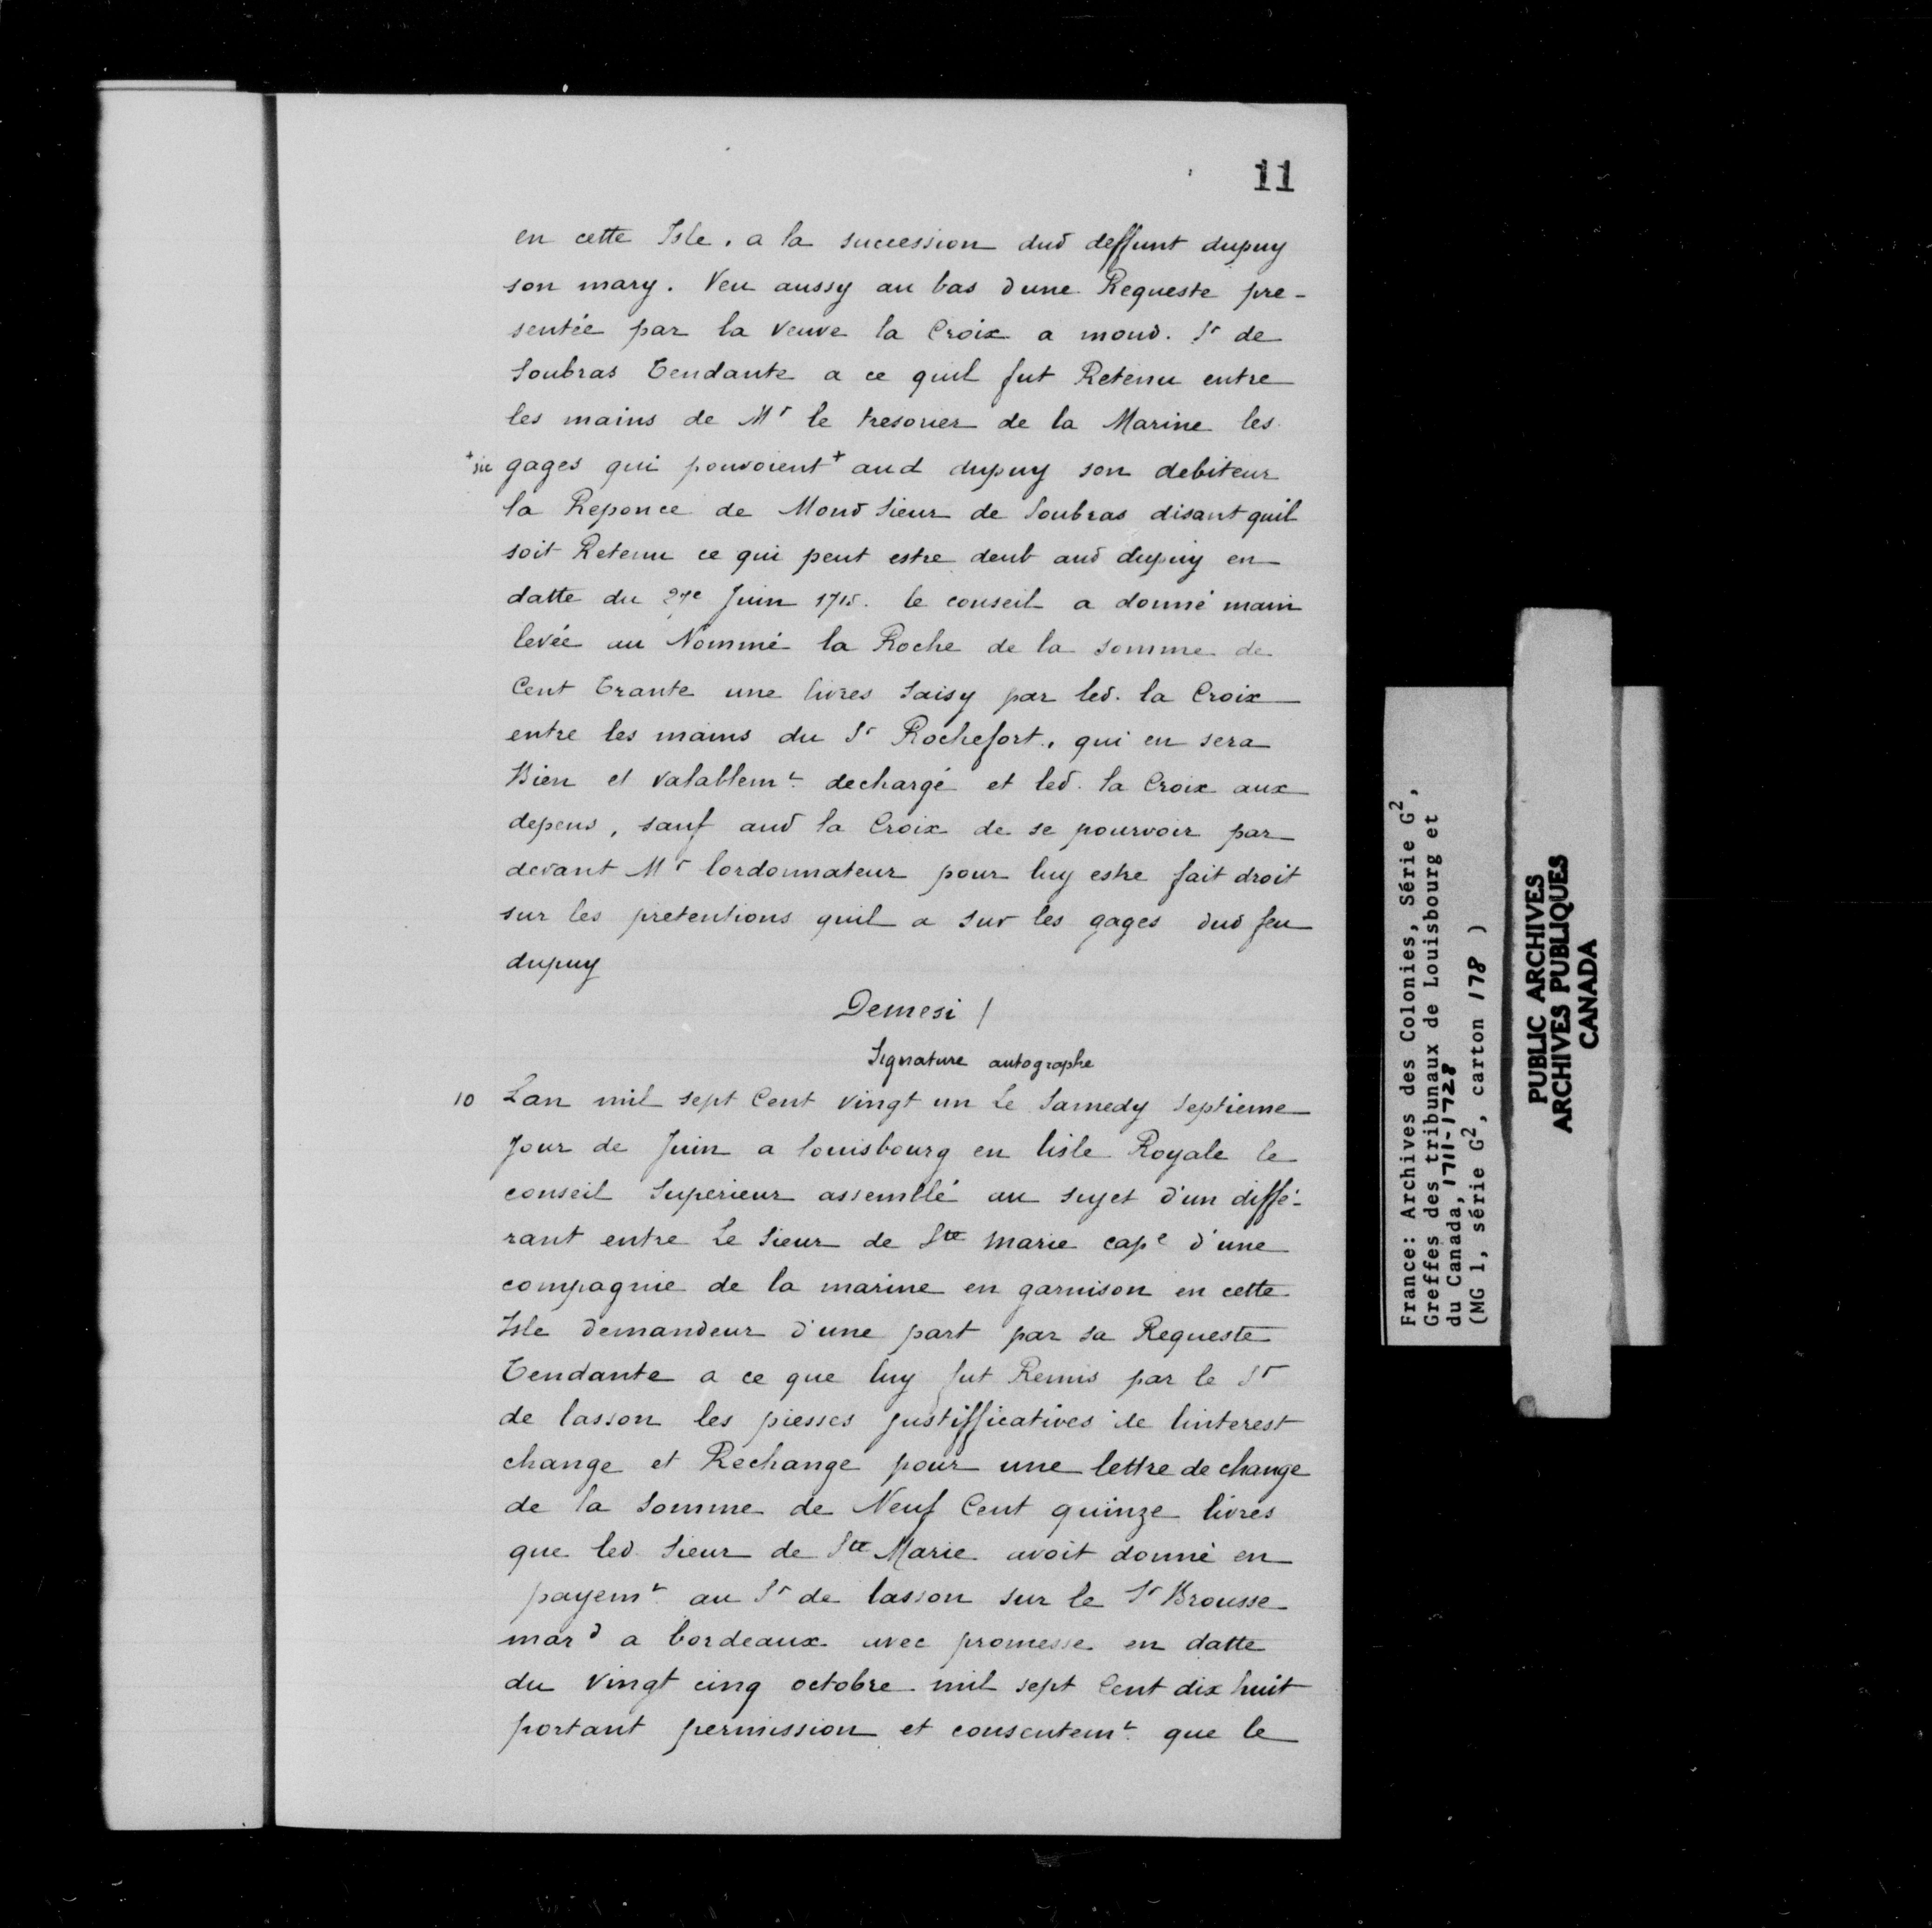 11
en cette Isle, a la succession dud deffunt dupuy
son mary. Veu aussy au bas dune Requeste pre-
sentée par la veuve la Croix a moud. Sr de
Soubras Tendante a ce quil fut Retenu entre
les mains de Mr le tresorier de la Marine les
+ sic gages qui pouvoient + aud dupuy son debiteur
la Reponce de Moud Sieur de Soubras disant quil
soit Retenu ce qui peut estre deub aud dupuy en
datte du 27e Juin 1715. le conseil a donné main
levée au Nommé la Roche de la somme de
Cent Trante une livres Saisy par led. la Croix
entre les mains du Sr Rochefort, qui en sera
Bien et valablemt dechargé et led. la Croix aux
depens, sauf aud la Croix de se pourvoir par
devant Mr lordonnateur pour luy estre fait droit
sur les pretentions quil a sur les gages dud feu
dupuy
Demesi /
Signature autographe
10 Lan mil sept Cent vingt un Le Samedy Septieme
Jour de Juin a louisbourg en lisle Royale le
conseil Superieur assemblé au sujet d'un diffé-
rant entre Le Sieur de Ste Marie cape d'une
compagnie de la marine en garnison en cette
Isle demandeur d'une part par sa Requeste
Tendante a ce que luy fut Remis par le Sr
de lasson les piesses justifficatives de linterest
change et Rechange pour une lettre de change
de la Somme de Neuf Cent quinze livres
que led. Sieur de Ste Marie avoit donné en
payemt au Sr de lasson sur le Sr Brousse
mard a bordeaux avec promesse en datte
du vingt cinq octobre mil sept Cent dix huit
portant permission et consentemt que le
France: Archives des Colonies, Série G2,
Greffes des tribunaux de Louisbourg et
du Canada, 1711-1728
(MG 1, série G2, carton 178 )
PUBLIC ARCHIVES
ARCHIVES PUBLIQUES
CANADA